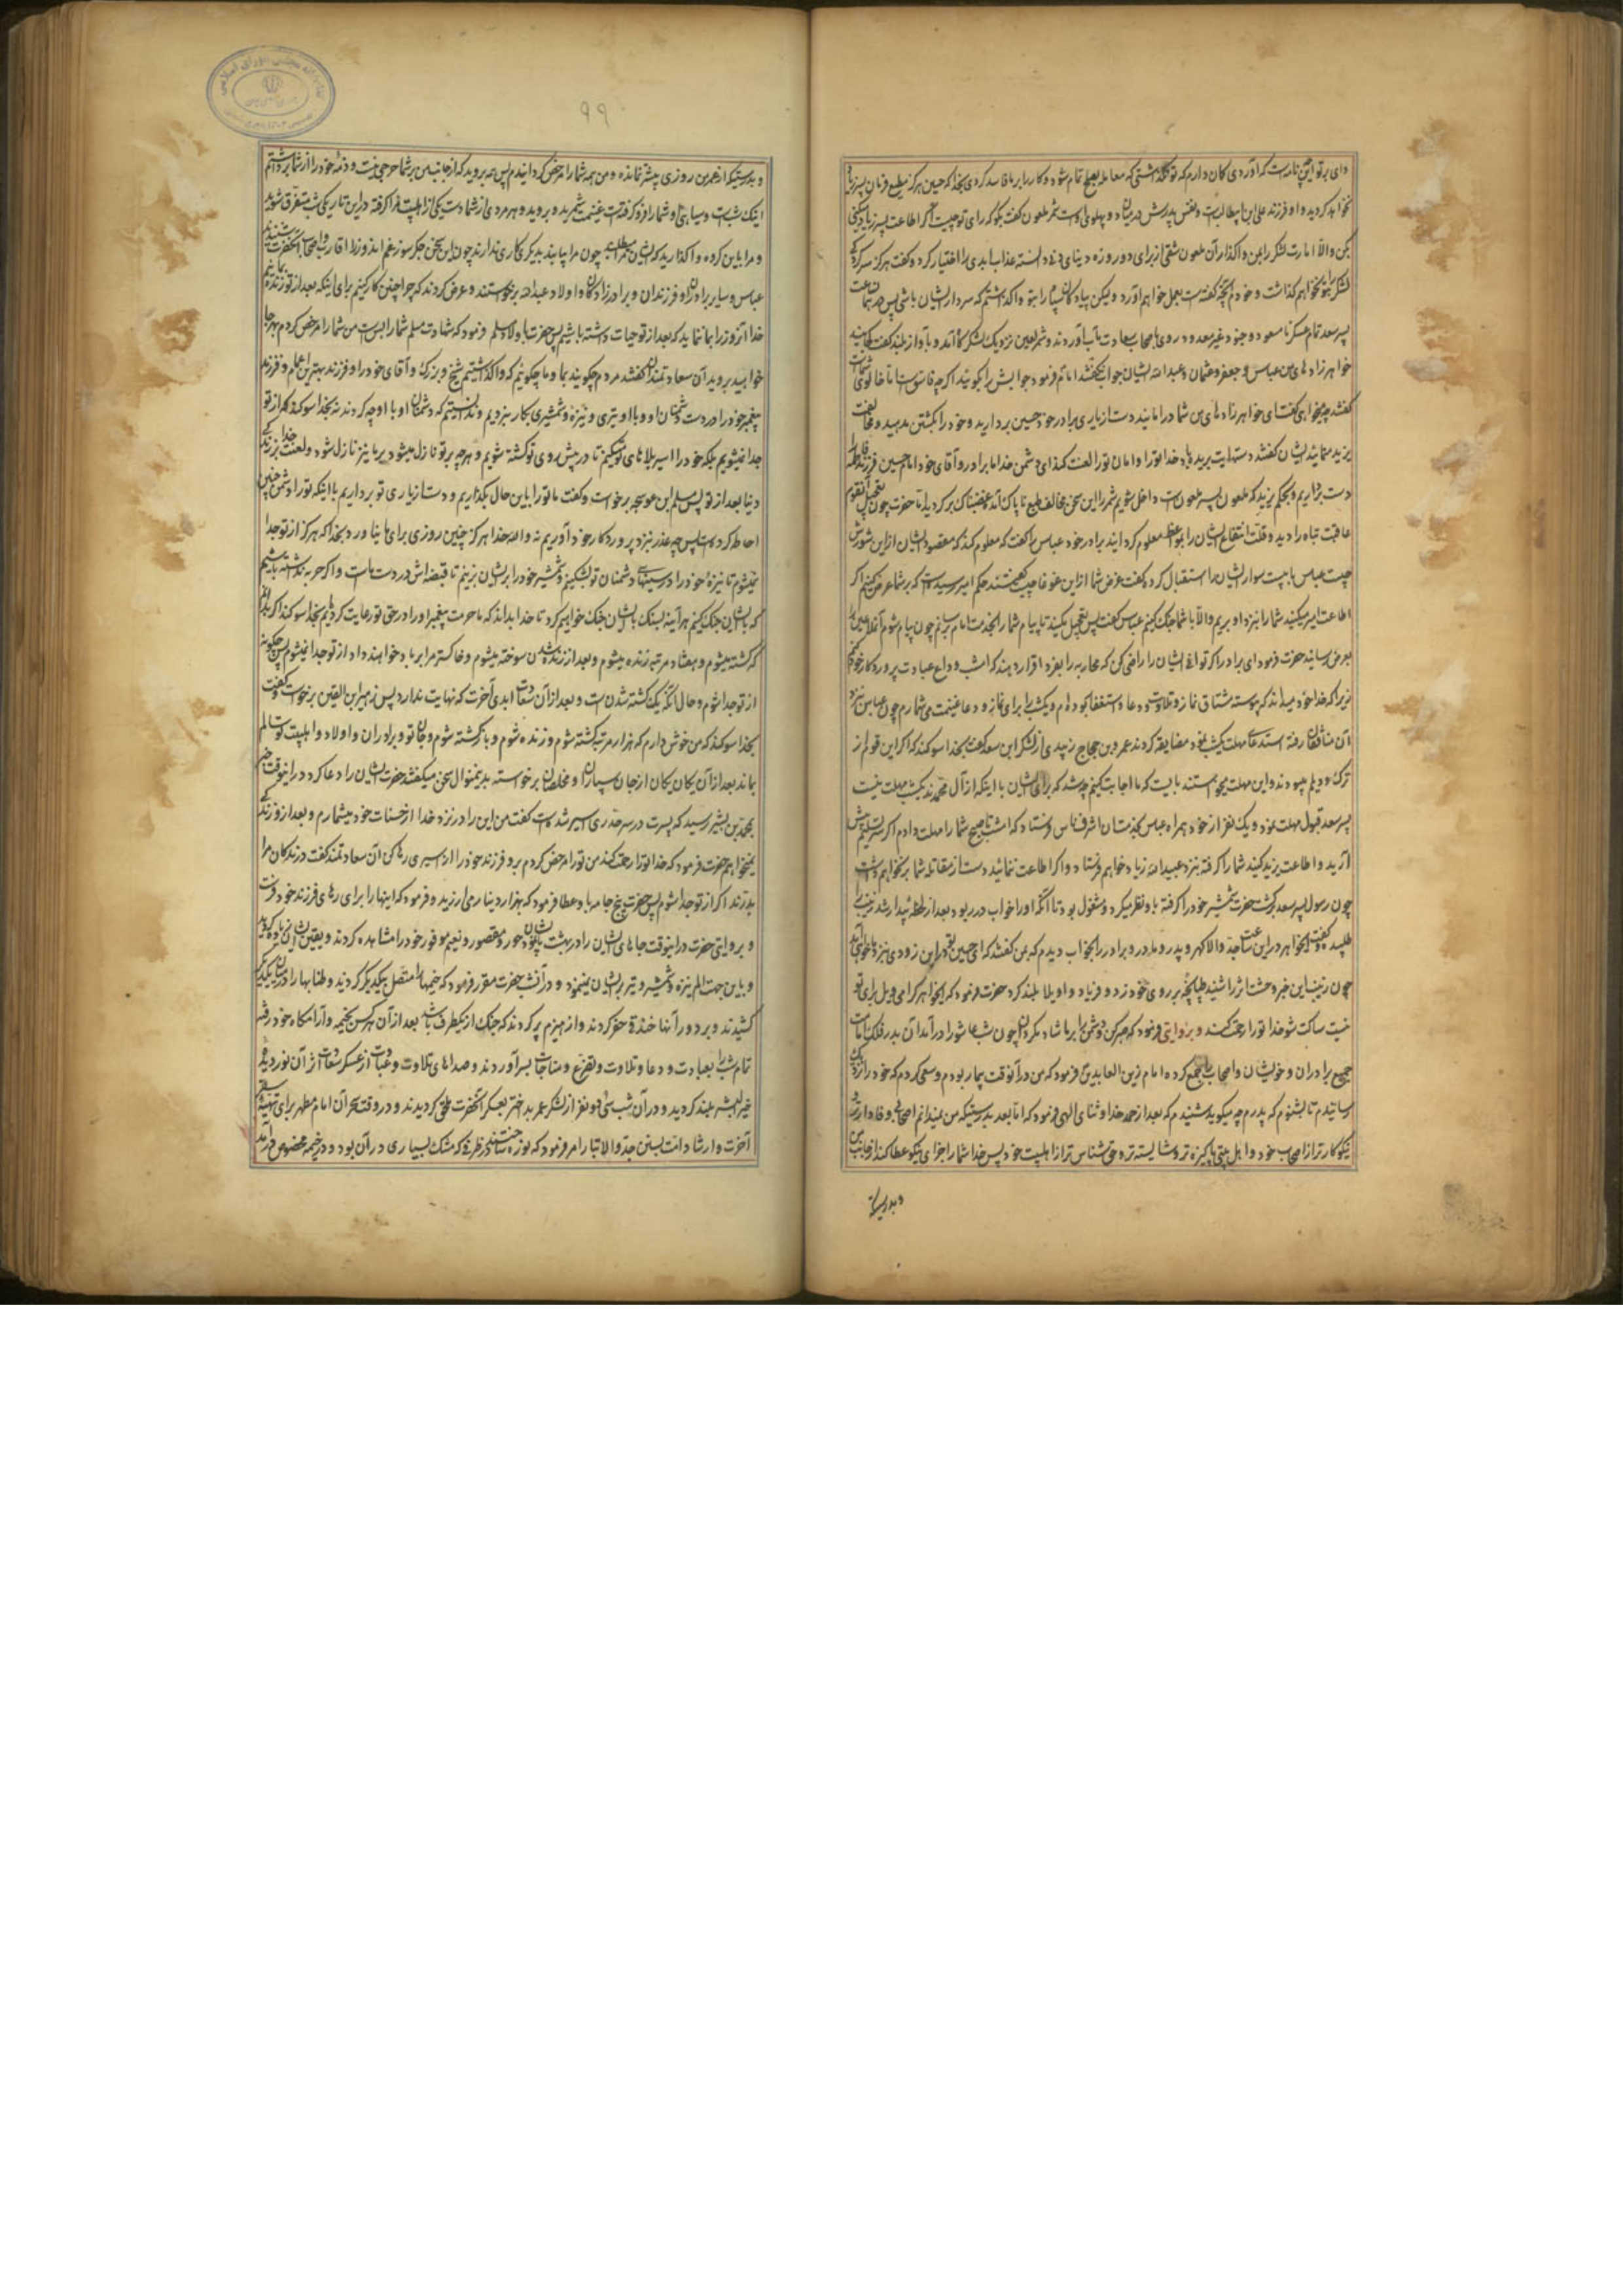 وای بر تو این چه نامه است که آوردی کمان دارم که تو نکذاشتی که معامله بصلح تمام شود و کار را بر ما فاسد کردی بخدا که حسین هرکز مطیع فرمان پسر زیاد
نخواهد کردید و او فرزند علی ابن ابیطالبست و نفس پدرش در میان دو پهلوی اوست شمر ملعون کفت بکو که رای تو چیست اکر اطاعت پسر زیاد میکنی
بکن والا امارت لشکر را بمن واکذار آن ملعون شقی از برای دو روزه دینای دنی دانسته عذاب ابدی را اختیار کرد و کفت هرکز سرکردکی
لشکر بتو نخواهم کذاشت و خود آنچه کفته است بعمل خواهم آورد ولیکن پیادکان سپاه را بتو واکذاشتم که سردار ایشان باشی پس در همان ساعت
پسر سعد تمام عسکر نامسعود و جنود غیر معدود رو باصحاب سعادت مآب آوردند و شمر لعین نزدیک لشکرکاه آمد و باواز بلند کفت کجایند
خواهرزادهای من عباس و جعفر و عثمان و عبدالله ایشان جواب نکفتند امام فرمود جوابش را بکویند اکرچه فاسق است اما خالوی شماست
کفتند چه میخواهی کفت ای خواهرزادهای من شما در امانید دست از یاری برادر خود حسین بردارید و خود را بکشتن مدهید و مخالفت
یزید منمایید ایشان کفتند دستهایت بریده باد خدا تو را و امان تو را لعنت کند ای دشمن خدا ما برادر و آقای خود امام حسین فرزند فاطمه را
دست برداریم و بحکم یزید که ملعون پسر ملعونست داخل شویم شمر را این سخن مخالف طبع ناپاک آمد غضبناک برکردید اما حضرت چون تعجیل آن قوم
عاقبت تباه را دید و قلت انتفاع ایشان را بمواعظ معلوم کردانید برادر خود عباس را کفت که معلوم کند که مقصود ایشان از این شورش
چیست عباس با بیست سوار ایشان را استقبال کرد و کفت غرض شما از این غوغا چیست کفتند حکم امیر رسیده است که بر شما عرض کنیم اکر
اطاعت امیر میکنید شما را بنزد او بریم والا با شما جنک کنیم عباس کفت پس تعجیل مکنید تا پیام شما را بخدمت امام برسانم چون پیام شوم آنملاعین را
بعرض رسانید حضرت فرمود ای برادر اکر توانی ایشان را راضی کن که محاربه را بفردا قرار دهند که امشب وداع عبادت پروردکار خود کنم
زیرا که خدا خود میداند که پیوسته مشتاق نماز و تلاوت و دعا و استغفار بوده ام و یکشب را برای نماز و دعا غنیمت می شمارم چون عباس نزد
آن منافقان رفته استدعای مهلت یکشب نمود مضایقه کردند عمرو بن حجاج زبیدی از لشکر ابن سعد کفت بخدا سوکند که اکر این قوم از
ترک و دیلم میبودند و این مهلت میخواستند بایست که ما اجابت کنیم چه شد که برای ایشان با اینکه از آل محمدند یکشب مهلت نیست
پسر سعد قبول مهلت نمود و یک نفر از خود همراه عباس بخدمت آن اشرف ناس فرستاد که امشب تا صبح شما را مهلت دادم اکر سر تسلیم پیش
آرید و اطاعت یزید کنید شما را کرفته بنزد عبیدالله زیاد خواهم فرستاد و اکر اطاعت ننمائید دست از مقاتله شما بر نخواهم داشت
چون رسول پسر سعد برکشت حضرت شمشیر خود را کرفته باو نظر میکرد و مشغول بود تا آنکه او را خواب در ربود بعد از لحظه بیدار شد زینب را
طلبید و کفت ایخواهر در این ساعت جد والا کهر و پدر و مادر و برادر را بخواب دیدم که بمن کفتند که ای حسین بقین در این زودی بنزد ما خواهی آمد
چون زینب این خبر وحشت اثر را شنید طپانچه بر روی خود زد و فریاد واویلا بلند کرد حضرت فرمود که ایخواهر کرامی ویل برای تو
نیست ساکت شو خدا تو را رحمت کند و بروایتی فرمود که صبر کن و دشمن را بر ما شاد مکردان چون شب عاشورا در آمد آن بدر فلک امامت
جمیع برادران و خویشان و اصحاب را جمع کرده امام زین العابدین فرمود که من در آنوقت بیمار بودم و سعی کردم که خود را نزدیک
رسانیدم تا بشنوم که پدرم چه میکوید شنیدم که بعد از حمد خدا و ثنای الهی فرمود که اما بعد بدرستیکه من نمیدانم اصحابی وفادارتر و
نیکوکارتر از اصحاب خود و اهل بیتی پاکیزه تر و شایسته تر و حق شناس تر از اهلبیت خود پس خدا شما را جزای نیکو عطا کند از جانب من
و بدرستیکه
۹۹
و بدرستیکه از عمر من روزی بیشتر نمانده و من همه شما را مرخص کردانیدم پس همه بروید که از جانب من بر شما حرجی نیست و ذمه خود را از شما برداشتم
اینک شب است و سیاهی شب شما را فرو کرفته است غنیمت شمرید و بروید و هر مردی از شما دست یکی از اهلبیت مرا کرفته در این تاریکی شب متفرق شوید
و مرا باین کروه واکذارید که ایشان مرا میطلبند چون مرا بیابند بدیکری کاری ندارند چون این سخن جکر سوز غم اندوز را اقارب و اصحاب آنحضرت شنیدند
عباس و سایر برادران او فرزندان و برادرزادکان و اولاد عبدالله برخواستند و عرض کردند که چرا چنین کار کنیم برای اینکه بعد از تو زنده بمانیم
خدا آنروز را بما ننماید که بعد از تو حیات داشته باشیم پس حضرت باولاد مسلم فرمود که شهادت مسلم شما را بس است من شما را مرخص کردم بهر جا
خواهید بروید آن سعادتمندان کفتند مردم چکویند بما و ما چکوئیم که واکذاشتیم شیخ و بزرک و آقای خود را و فرزند بهترین اعمام و فرزند
پیغمبر خود را در دست دشمنان او و با او تیری و نیزه و شمشیری بکار نبردیم و ندانستیم که دشمنان او با او چه کردند نه بخدا سوکند که از تو
جدا نمیشویم بلکه خود را اسیر بلاهای تو میکنیم تا در پیش روی تو کشته شویم و هر چه بر تو نازل میشود بر ما نیز نازل شود و لعنت خدا بر زندکی
دنیا بعد از تو پس مسلم ابن عوسجه برخواست و کفت ما تو را باین حال بکذاریم و دست از یاری تو برداریم با اینکه تو را دشمن چنین
احاطه کرده است پس چه عذر نزد پروردکار خود آوریم نه والله خدا هرکز چنین روزی برای ما نیاورد بخدا که هرکز از تو جدا
نمیشوم تا نیزۀ خود را در سینهای دشمنان تو بشکنیم و شمشیر خود را بر ایشان بزنیم تا قبضه اش در دست ماست و اکر حربه نداشته باشیم
که بایشان جنک کنیم هر آینه بسنک بایشان جنک خواهیم کرد تا خدا بداند که ما حرمت پیغمبر او را در حق تو رعایت کردیم بخدا سوکند اکر بدانم
که کشته میشوم و هفتاد مرتبه زنده میشوم و بعد از زنده شدن سوخته میشوم و خاکستر مرا بر باد خواهند داد از تو جدا نمیشوم پس چکونه
از تو جدا شوم و حال آنکه یک کشته شدن است و بعد از آن سعادت ابدی آخرت که نهایت ندارد پس زهیر ابن القین برخواست و کفت
بخدا سوکند که من خوش دارم که هزار مرتبه کشته شوم و زنده شوم و باز کشته شوم و جان تو و برادران و اولاد و اهلبیت تو سالم
بماند بعد از آن یکان یکان از جان سپاران و مخلصان برخواسته بدینمنوال سخن میکفتند حضرت ایشان را دعا کرد در اینوقت خبر
بمحمد بن بشیر رسید که پسرت در سرحد ری اسیر شده است کفت من این را در نزد خدا از حسنات خود میشمارم و بعد از او زندکی
نمیخواهم حضرت فرمود که خدا تو را رحمت کند من تو را مرخص کردم برو فرزند خود را از اسیری رها کن آن سعادتمند کفت درندکان مرا
بدرند اکر از تو جدا شوم پس حضرت پنج جامه باو عطا فرمود که بهزار دینار می ارزید و فرمود که اینها را برای رهای فرزند خود بفرست
و بروایتی حضرت در اینوقت جاهای ایشان را در بهشت بایشان نمود حور و قصور و نعیم موفور خود را مشاهده کردند و یقین ایشان زیاده کردید
و باین جهت الم نیزه و شمشیر و تیر بر ایشان نمینمود و در آنشب حضرت مقرر فرمود که خیمهها را متصل بیکدیکر کردید و طنابها را در میان یکدیکر
کشیدند و بر دور آنها خندق حفر کردند و از هیزم پر کردند که جنک از یکطرف باشد بعد از آن هرکس بخیمه و آرامکاه خود رفته
تمام شب را بعبادت و دعا و تلاوت و تضرع و مناجات بسر آوردند و صداهای تلاوت و عبادت از عسکر سعادت اثر آن نور دیده
خیر البشر بلند کردید و در آن شب سی و دو نفر از لشکر عمر بد اختر بعسکر آنحضرت ملحق کردیدند و در وقت سحر آن امام مطهر برای تهیه سفر
آخرت و ارشاد امت بسنن جد والاتبار امر فرمود که نوره ساختند در ظرفی که مشک بسیاری در آن بود و در خیمه مخصوص فرمود